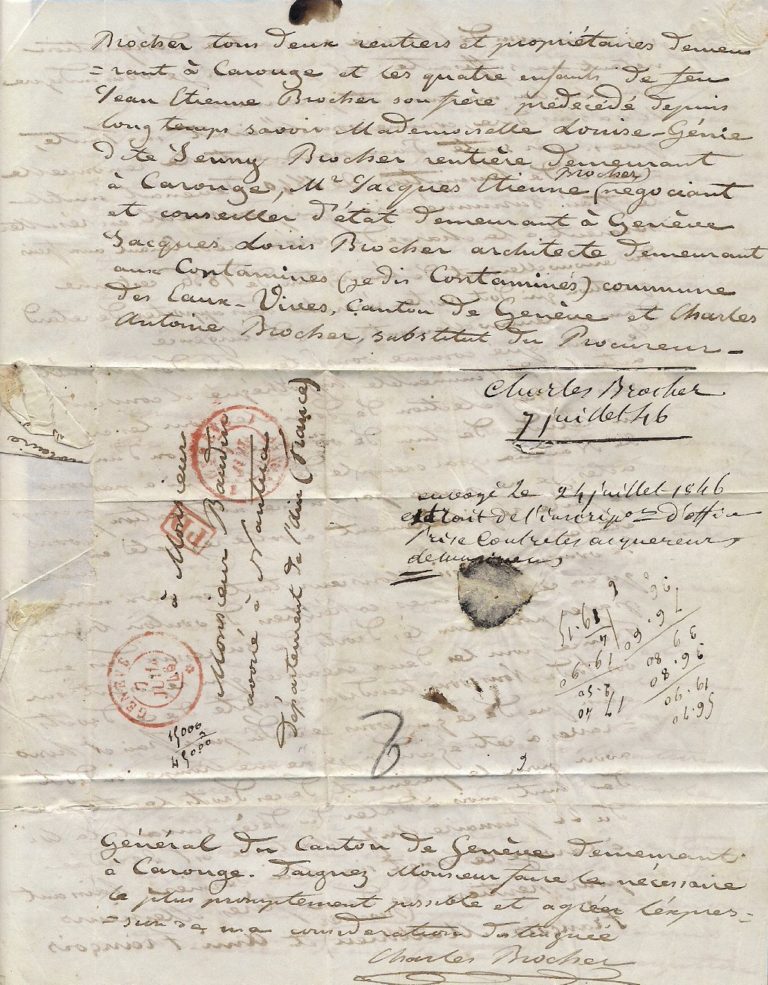 Brocher tous deux rentiers et propriétaires demeu
=rant à Carouge et les quatre enfants de feu
Jean Etienne Brocher son frère prédécédé depuis
longtemps savoir Mademoiselle Louise-Génie
dite Jenny Brocher rentière demeurant
à Carouge, Mr Jacques Etienne (Brocher) négociant
et conseiller d'état demeurant à Genève
Jacques Louis Brocher architecte demeurant
aux Contamines (je dis Contamines) commune
des Eaux-Vives, Canton de Genève et Charles
Antoine Brocher, substitut du Procureur
Charles Brocher
7 juillet 46
à Monsieur
Monsieur Baudin
avoué à Nantua
Département de l'Ain (France)
PD
GENEVE
envoyé le 24 juillet 1846
extrait de l'inscripon d'office
prise contre les acquereurs
15000
45000
19.15
4
19.90
2.50
17 40
76.60
39 80
36.80
19.90
56.70
Général du Canton de Genève demeurant
à Carouge. Daignez Monsieur faire le nécessaire
le plus promptement possible et agréer l'expres=
=sion de ma considération distinguée
Charles Brocher